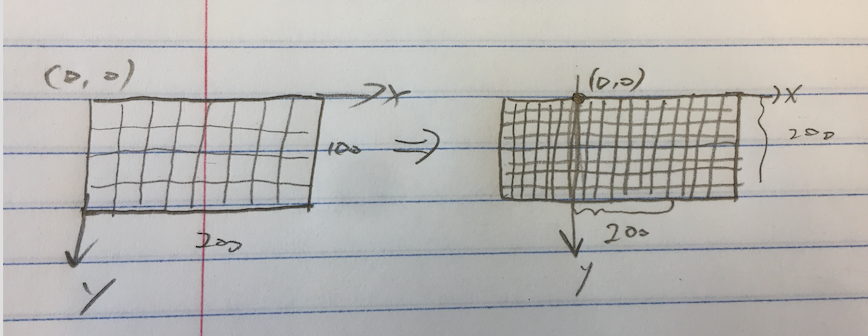 (0, 0)
X
100
200
Y
⇒
(0,0)
X
200
200
y